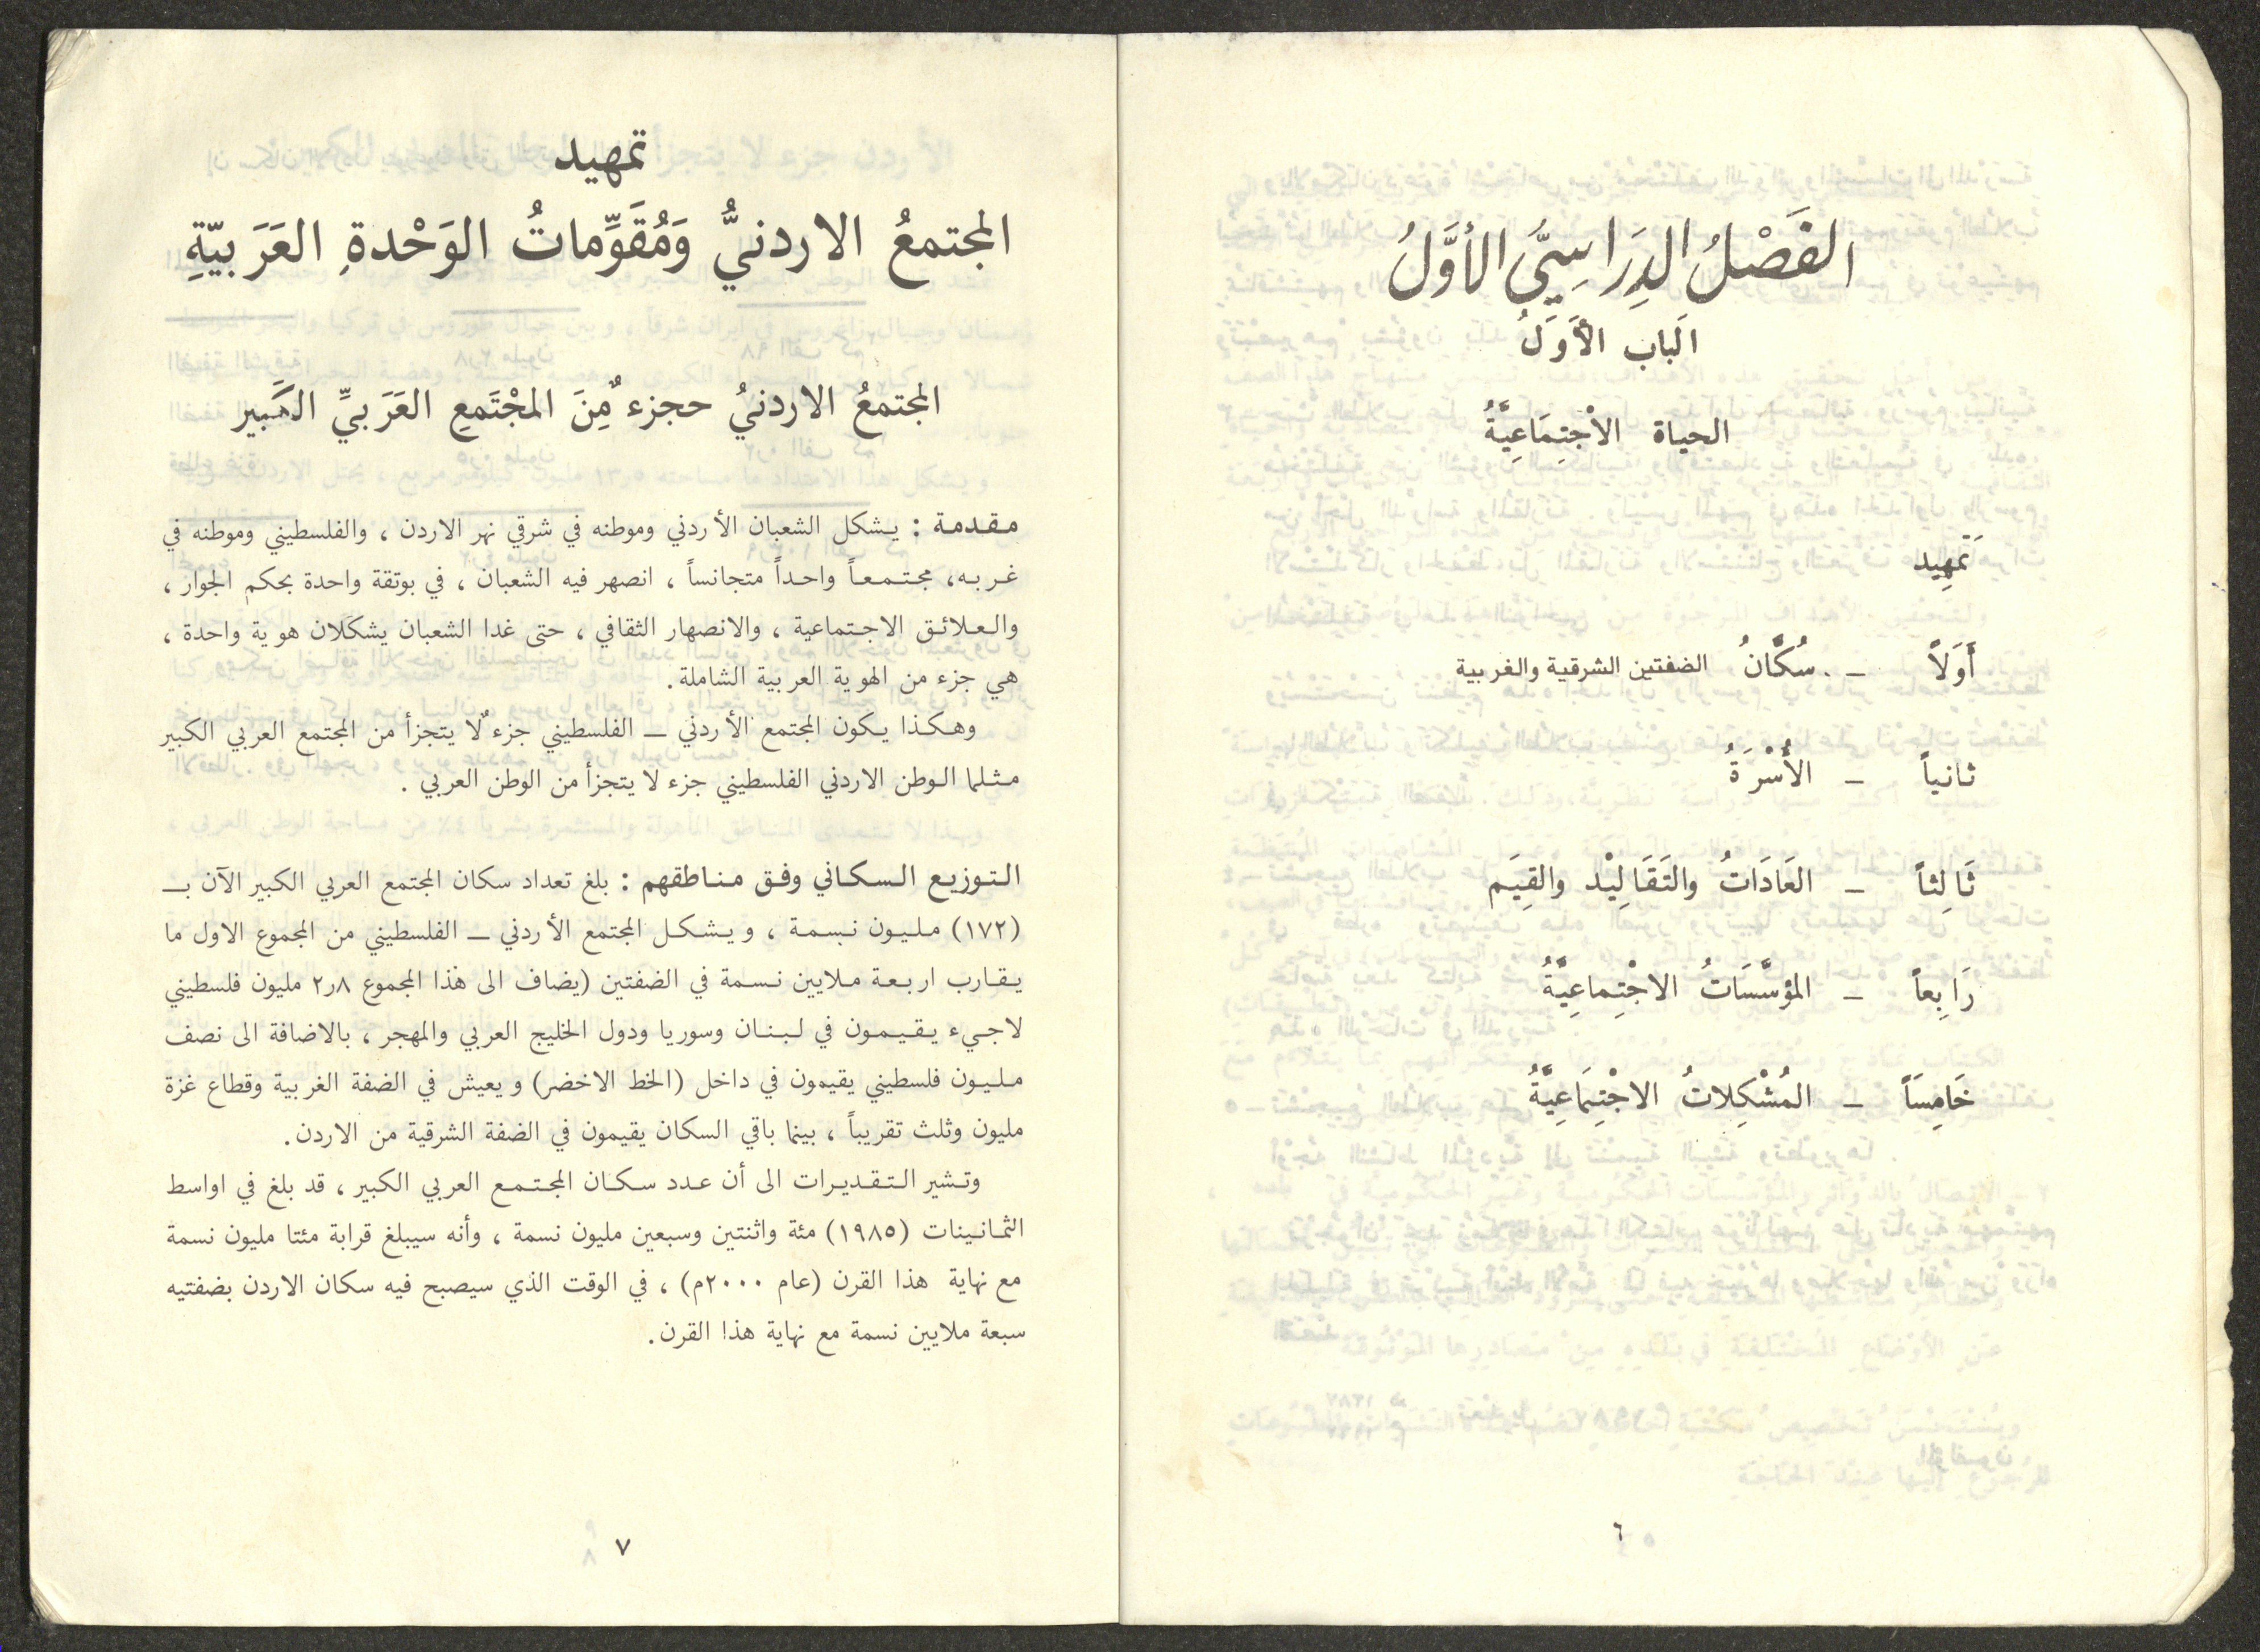 الفَصْلُ الدِرَاسِيَّ الأوَّلُ
الَباب الأَوَلُ
الحياة الاْجْتِمَاعِيَّةُ
تَمهِيد
أَوَلاً – سُكَّانُ الضفتين الشرقية والغربية
ثانياً – الأُسْرَةُ
ثَالِثاً – العَادَاتُ والتَقَالِيْد والقِيَم
رَابِعاً – المؤسَّسَاتُ الاجْتِماعِيَّةُ
خَامِسَاً – المُشْكِلاتُ الاجْتِمَاعِيَّةُ
٦
تمهيد
المجتمعُ الاردنيُّ وَمُقَوِّماتُ الوَحْدةِ العَرَبيّةِ
المجتمعُ الاردنيُ كجزءٌ مِّنَ المجْتَمعِ العَرَبيِّ الكَبير
مقدمة : يشكل الشعبان الأردني وموطنه في شرقي نهر الاردن ، والفلسطيني وموطنه في
غربه، مجتمعاً واحداً متجانساً ، انصهر فيه الشعبان ، في بوتقة واحدة بحكم الجوار ،
والعلائق الاجتماعية ، والانصهار الثقافي ، حتى غدا الشعبان يشكلان هوية واحدة ،
هي جزء من الهوية العربية الشاملة.
وهكذا يكون المجتمع الأردني – الفلسطيني جزءٌ لا يتجزأ من المجتمع العربي الكبير
مثلما الوطن الاردني الفلسطيني جزء لا يتجزأ من الوطن العربي .
التوزيع السكاني وفق مناطقهم : بلغ تعداد سكان المجتمع العربي الكبير الآن بـ
(١٧٢) مليون نسمة ، ويشكل المجتمع الأردني – الفلسطيني من المجموع الاول ما
يقارب اربعة ملايين نسمة في الضفتين (يضاف الى هذا المجموع ٢٫٨ مليون فلسطيني
لاجيء يقيمون في لبنان وسوريا ودول الخليج العربي والمهجر ، بالاضافة الى نصف
مليون فلسطيني يقيمون في داخل (الخط الاخضر) ويعيش في الضفة الغربية وقطاع غزة
مليون وثلث تقريباً ، بينما باقي السكان يقيمون في الضفة الشرقية من الاردن.
وتشير التقديرات الى أن عدد سكان المجتمع العربي الكبير ، قد بلغ في اواسط
الثمانينات (١٩٨٥) مئة واثنتين وسبعين مليون نسمة ، وأنه سيبلغ قرابة مئتا مليون نسمة
مع نهاية هذا القرن (عام ٢٠٠٠م) ، في الوقت الذي سيصبح فيه سكان الاردن بضفتيه
سبعة ملايين نسمة مع نهاية هذا القرن.
٧